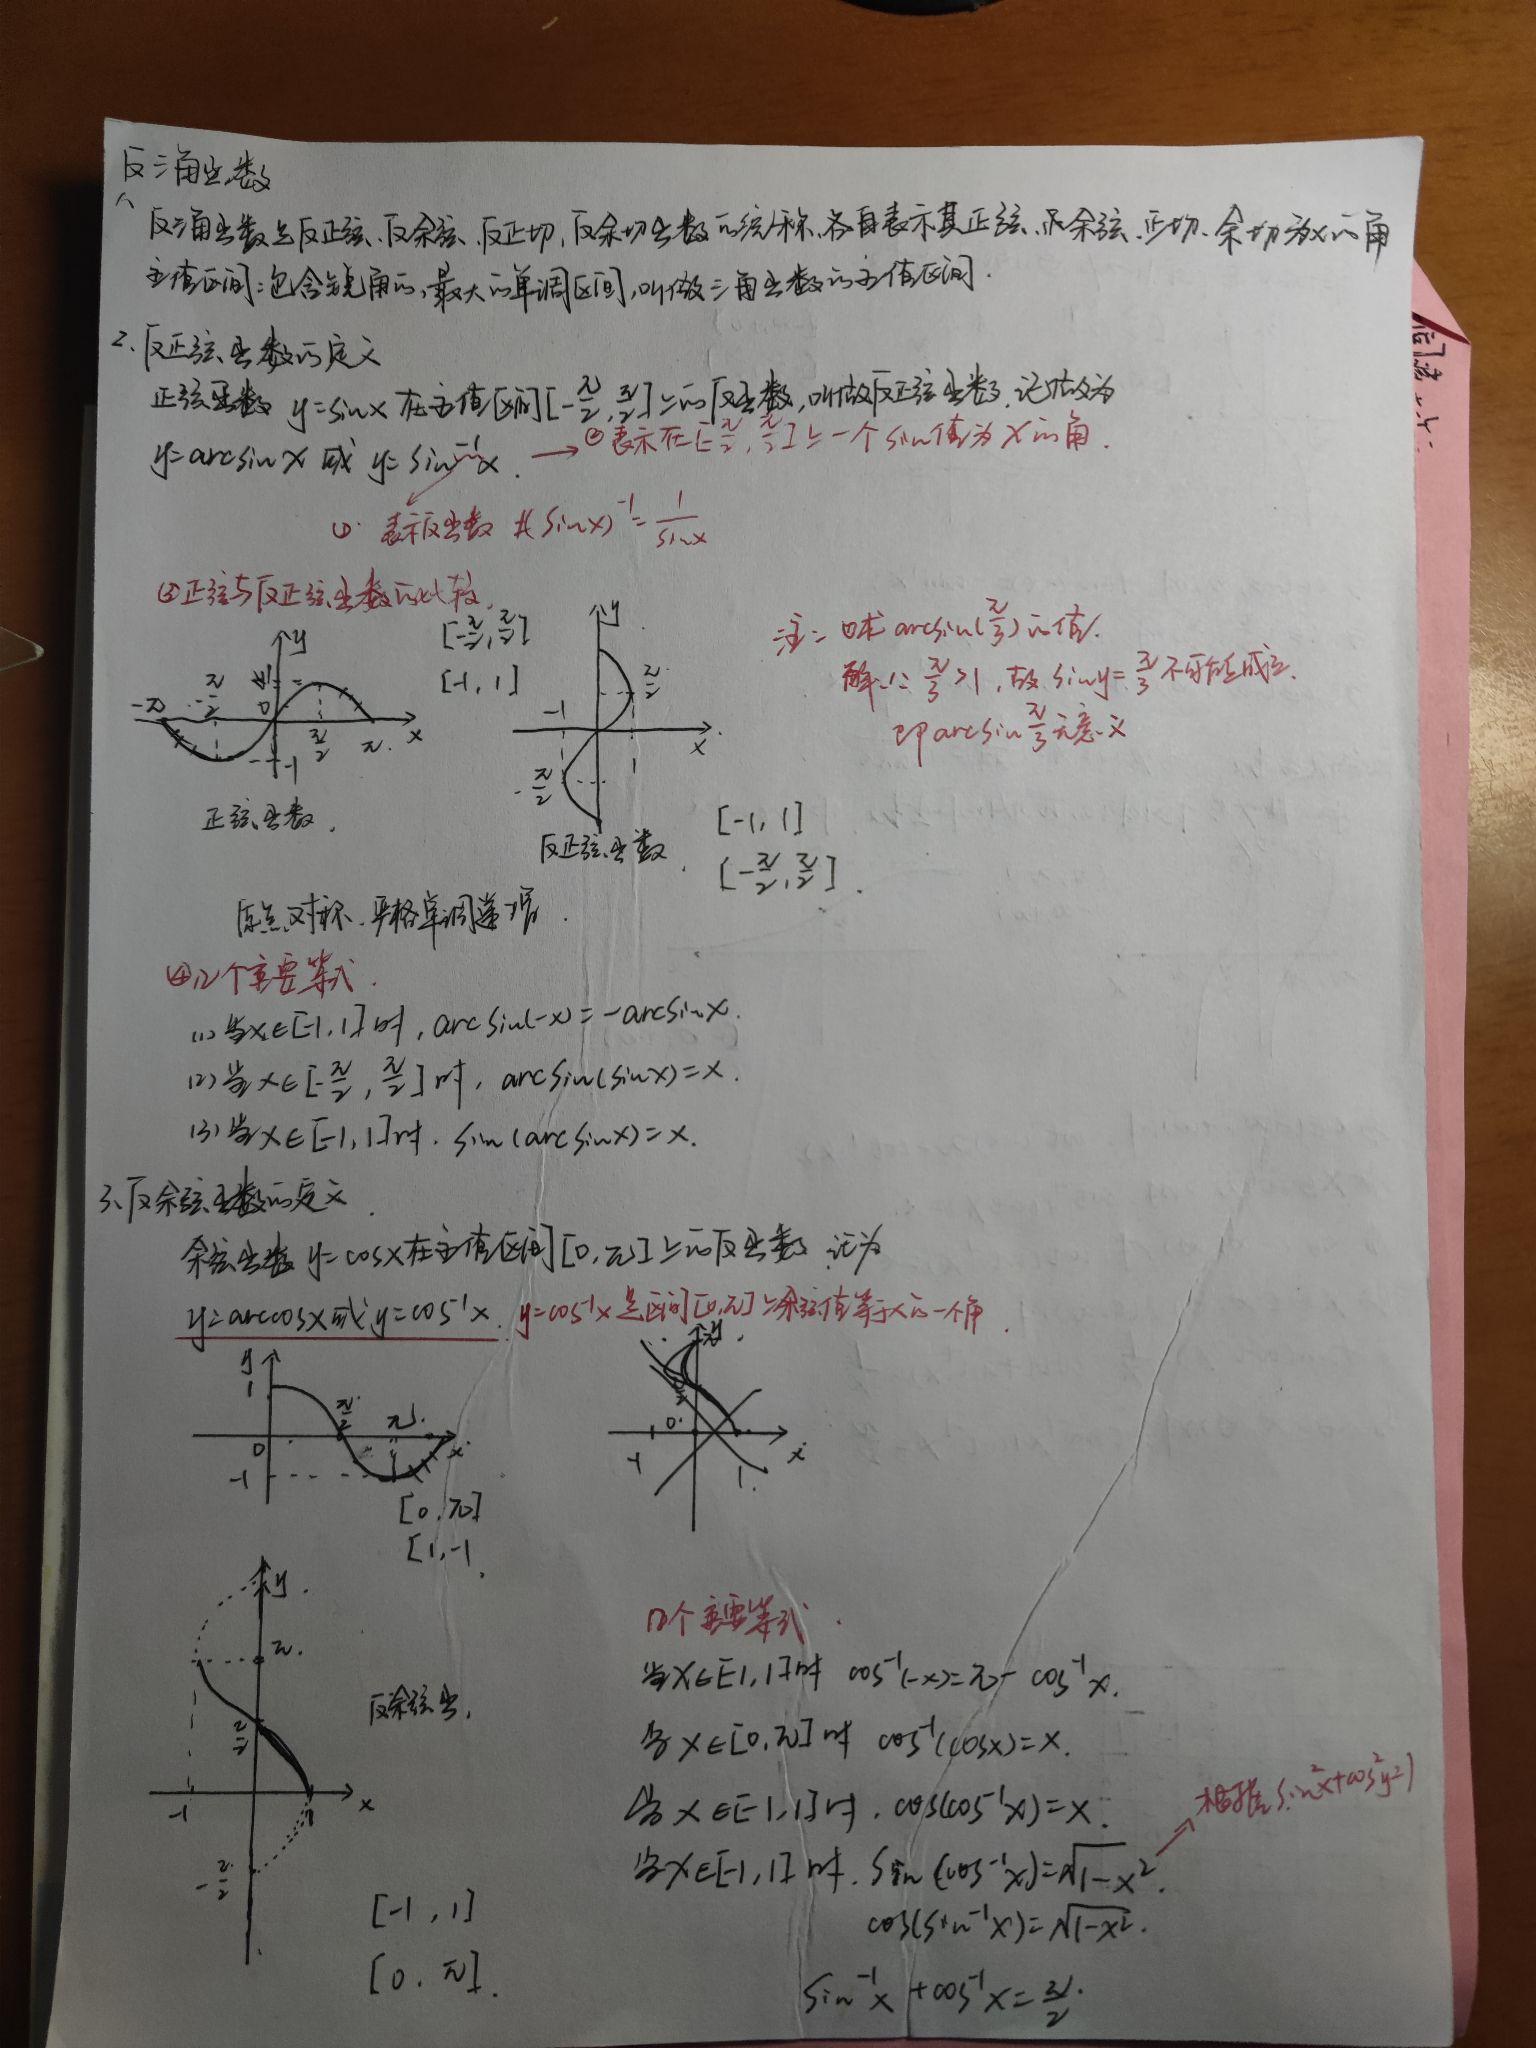 反三角函数
1、反三角函数是反正弦、反余弦、反正切,反余切函数的统称、各自表示其正弦、余弦、正切、余切为x的角
主值区间:包含锐角的,最大的单调区间,叫做三角函数的主值区间.
2、反正弦函数的定义
正弦函数 y=sinx 在主值区间[-π/2,π/2]上的反函数,叫做反正弦函数,记做为
y=arcsinx 或 y=sin⁻¹x. → ②表示在[-π/2,π/2]上一个sin值为x的角.
①. 表示反函数 ≠(sinx)⁻¹=1/sinx
③正弦与反正弦函数的比较.
y
1
-π
-π/2
0
π/2
π.
x
-1
正弦函数.
[-π/2,π/2]
[-1,1]
y
π/2
-1
1
x
-π/2
反正弦函数.
[-1,1]
[-π/2,π/2].
注: 求 arcsin(π/3)的值.
解: ∵π/3>1,故 siny=π/3不可能成立.
即arcsinπ/3无意义
原点对称、严格单调递增.
④几个重要等式.
(1)当x∈[-1,1]时,arcsin(-x)=-arcsinx.
(2)当x∈[-π/2,π/2]时,arcsin(sinx)=x.
(3)当x∈[-1,1]时.sin(arcsinx)=x.
3、反余弦函数的定义.
余弦函数 y=cosx在主值区间[0,π]上的反函数 记为
y=arccosx或y=cos⁻¹x. y=cos⁻¹x是区间[0,π]上余弦值等于x的一个角.
y
1
π/2
π.
0
x
-1
[0,π]
[1,-1
y
π
0.
-1
1
x
y.
π.
π/2
-1
1
x
-π/2
反余弦函.
[-1,1]
[0.π].
几个重要等式.
当x∈[-1,1]时 cos⁻¹(-x)=π-cos⁻¹x.
当x∈[0,π]时 cos⁻¹(cosx)=x.
当x∈[-1,1]时.cos(cos⁻¹x)=x.
当x∈[-1,1]时.sin(cos⁻¹x)=√1-x².
根据 sin²x+cos²y=1
cos(sin⁻¹x)=√1-x².
sin⁻¹x+cos⁻¹x=π/2.